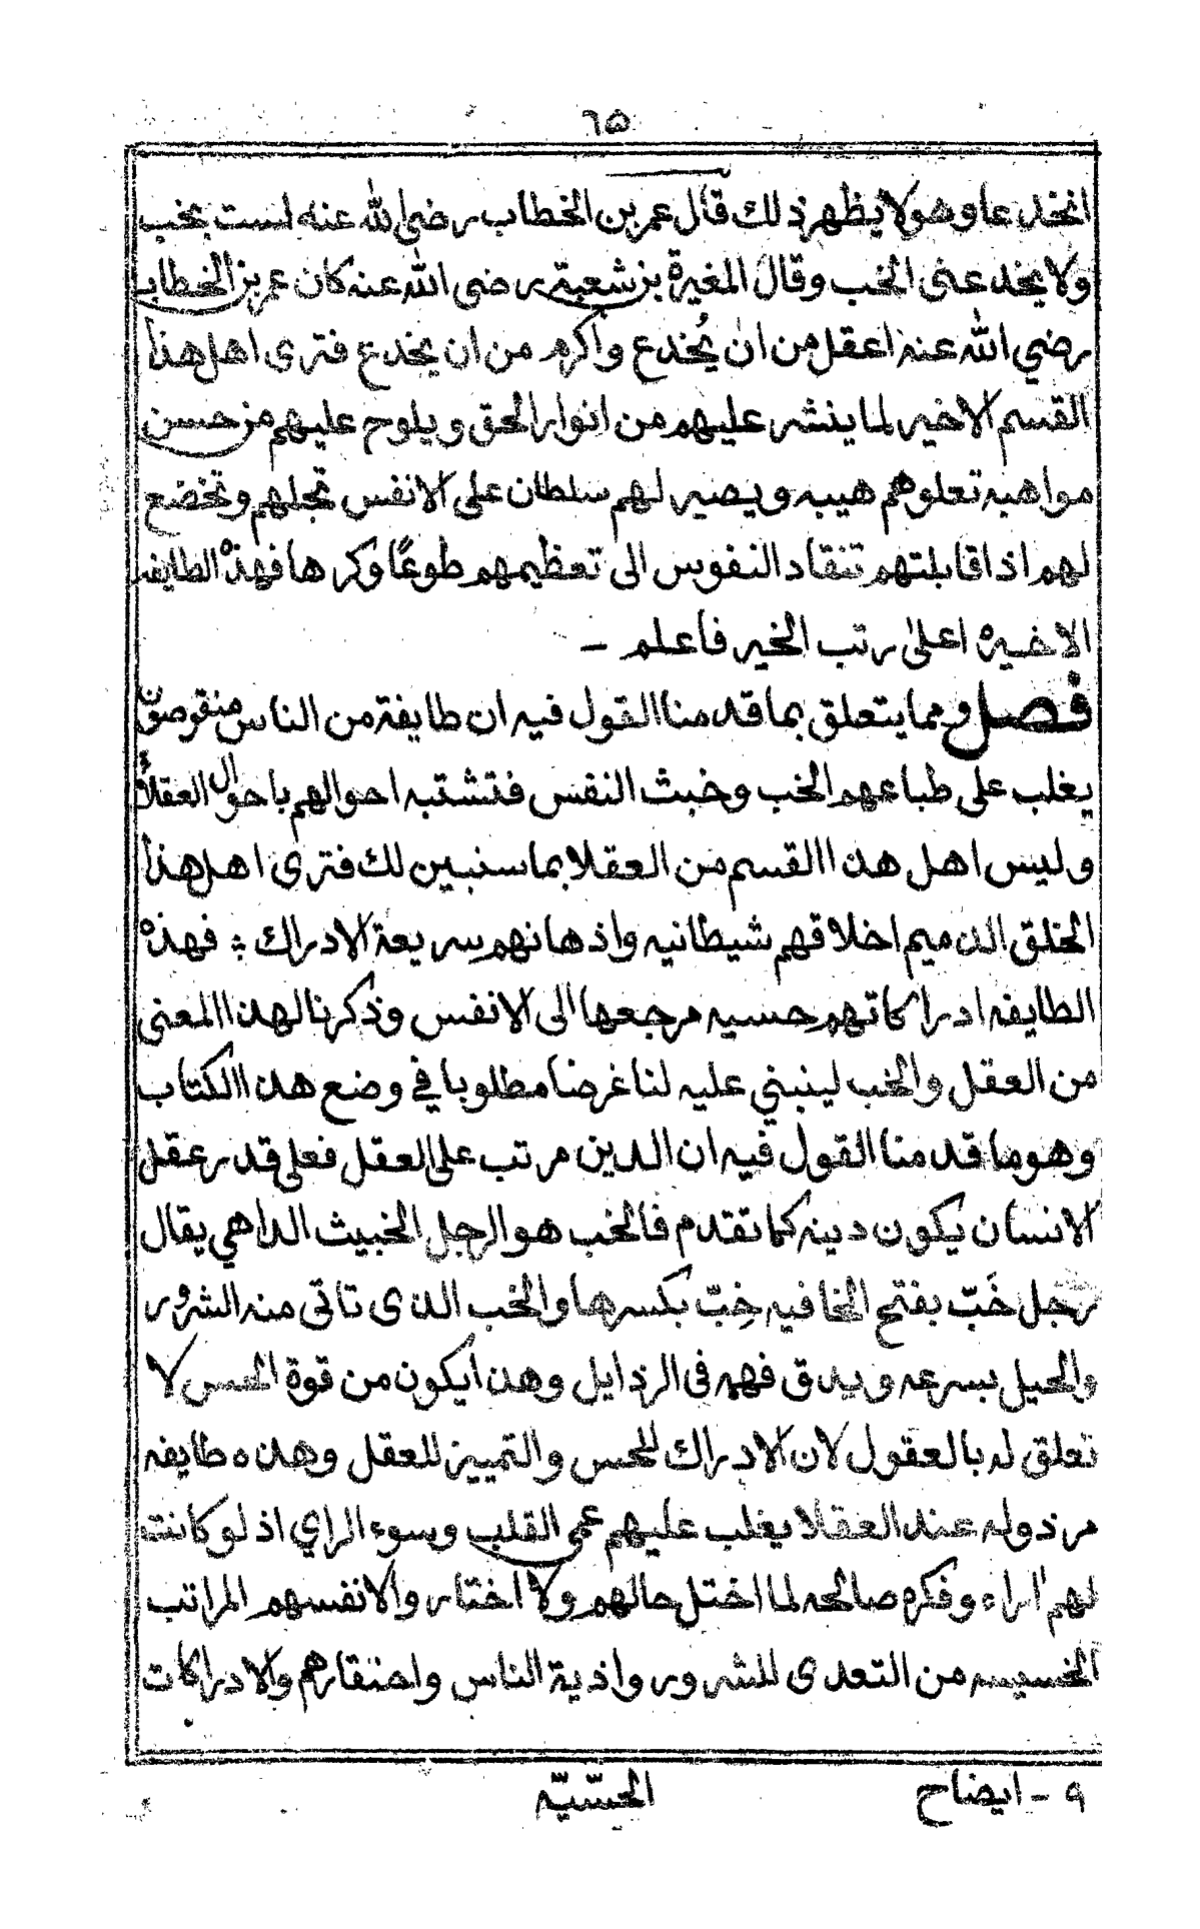 ٦٥
انخدعا وهو لا يظهر ذلك قال عمر بن الخطاب رضي الله عنه لست بخب
ولا يخدعنى الخب وقال المغيرة بن شعبة رضى الله عنه كان عمر بن الخطاب
رضي الله عنه اعقل من ان يُخدع واكرم من ان يخدع فترى اهل هذا
القسم الاخير لما ينشر عليهم من انوار الحق ويلوح عليهم من حسن
مواهبه تعلوهم هيبه ويصير لهم سلطان على الانفس تجلهم وتخضع
لهم اذا قابلتهم تنقاد النفوس الى تعظيمهم طوعًا وكرها فهذه الطايفه
الاخيره اعلى رتب الخير فاعلم –
فصل ومما يتعلق بما قدمنا القول فيه ان طايفة من الناس منقوصون
يغلب على طباعهم الخب وخبث النفس فتشتبه احوالهم باحوال العقلاء
وليس اهل هذا القسم من العقلا بما سنبين لك فترى اهل هذا
الخلق الذميم اخلاقهم شيطانيه واذهانهم سريعة الادراك : فهذه
الطايفه ادراكاتهم حسيه مرجعها الى الانفس وذكرنا لهذا المعنى
من العقل والخب لينبني عليه لنا غرضا مطلوبا في وضع هذا الكتاب
وهو ما قدمنا القول فيه ان الدين مرتب على العقل فعلى قدر عقل
الانسان يكون دينه كما تقدم فالخب هو الرجل الخبيث الداهي يقال
رجل خَبّ بفتح الخا فيه خِبّ بكسرها والخب الذى تاتى منه الشرور
والحيل بسرعه ويدق فهمه فى الرذايل وهذا يكون من قوة الحس لا
تعلق له بالعقول لان الادراك للحس والتمييز للعقل وهذه طايفه
مرذوله عند العقلا يغلب عليهم عمى القلب وسوء الراي اذ لو كانت
لهم اراء وفكره صالحه لما اختل حالهم ولا اختاروا لانفسهم المراتب
الخسيسه من التعدى للشرور واذية الناس واحتقارهم والادراكات
٩ – ايضاح
الحسّيّه